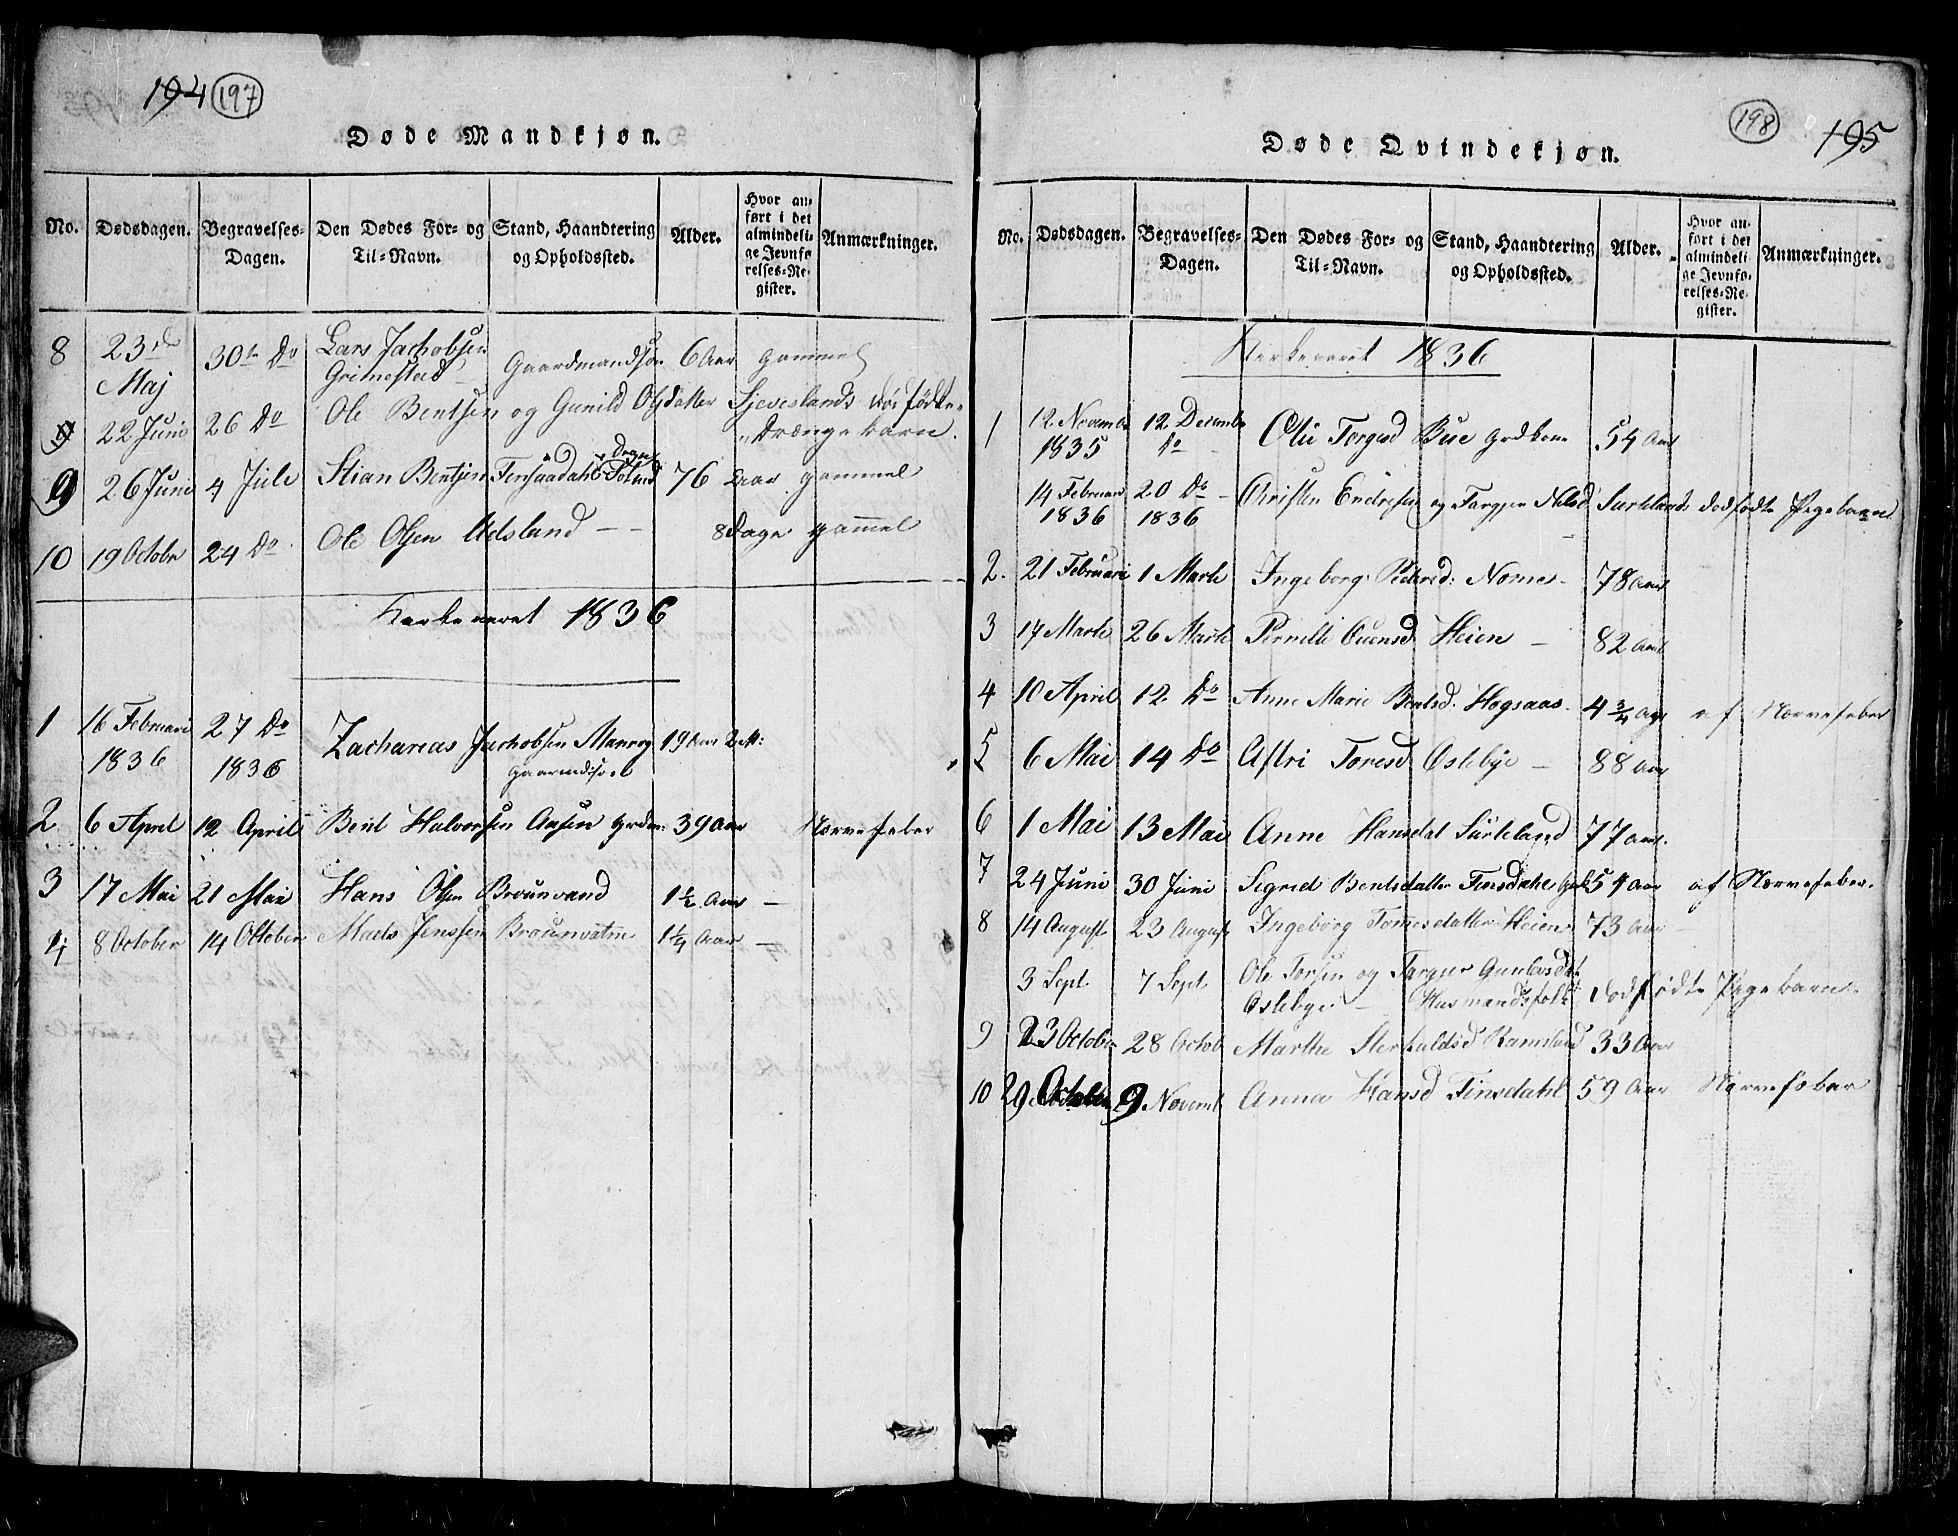 194 197
Døde Mandkjøn.
No. Dødsdagen. Begravelses-Dagen. Den Dødes For- og Til-Navn. Stand, Haandtering og Opholdssted. Alder. Hvor anført i det almindelige Jevnførelses-Register. Anmærkninger.
8 23de Maj 30te Do Lars Jachobsen Grimestad Gaardmandsøn 6 Aar gammel
9 22 Juni 26 Do Ole Bentsen og Gunild Olsdatter Sjeveslands dødfødte Drænge barn.
9 26 Juni 4 Jule Stian Bentsen 76 Aar gammel
10 19 Octobr 24 Do Ole Olsen Udsland 8 Dage gammel
Kirke aaret 1836
1 16 Februari 1836 27 Do 1836 Zacharias Jachobsen 19 Aar 2 M:
2 6 April 12 April Bent Halvorsen Aasen 39 Aar Nærvefeber
3 17 Mai 21 Mai Hans Olsen Brounvand 1½ Aar
4 8 October 14 Oktober Mads Jenssen Brounvatne 1¼ Aar
198 195
Døde Qvindekjøn.
No. Dødsdagen. Begravelses-Dagen. Den Dødes For- og Til-Navn. Stand, Haandtering og Opholdssted. Alder. Hvor anført i det almindelige Jevnførelses-Register. Anmærkninger.
Kirkeaaret 1836
1 12 Novembr 1835 12 Decembr do Bue 54 Aar
14 Februar 1836 20 Do 1836 Christen Endresen og dødfødte Pigebarn
2. 21 Februari 1 Marts Ingeborg Pedersd: Nome 78 Aar
3 17 Marts 26 Marts Pernille Ouensd Heien 82 Aar
4 10 April 12 Do Anne Marie Bentsd. Hogsaas 4¾ Aar af Nærvefeber
5 6 Mai 14 Do Astri Toresd Oslebye 88 Aar
6 1 Mai 13 Mai Anne Hansdat Surteland 77 Aar.
7 24 Juni 30 Juni Sigrid Bentsdatter Finsdahl 54 Aar af Nærvefeber.
8 14 August 23 August Ingebørg Tommesdatter Heien 73 Aar
3 Sept. 7 Sept. Ole Torsen og Targier Gunlevsdat
Oslebye Husmandsfolk Dødfødte Pigebarn.
9 23 October 28 Octob Marthe Ramsland 33 Aar
10 29 October 9 Novembr Anna Hansd Finsdahl 59 Aar Nærvefeber